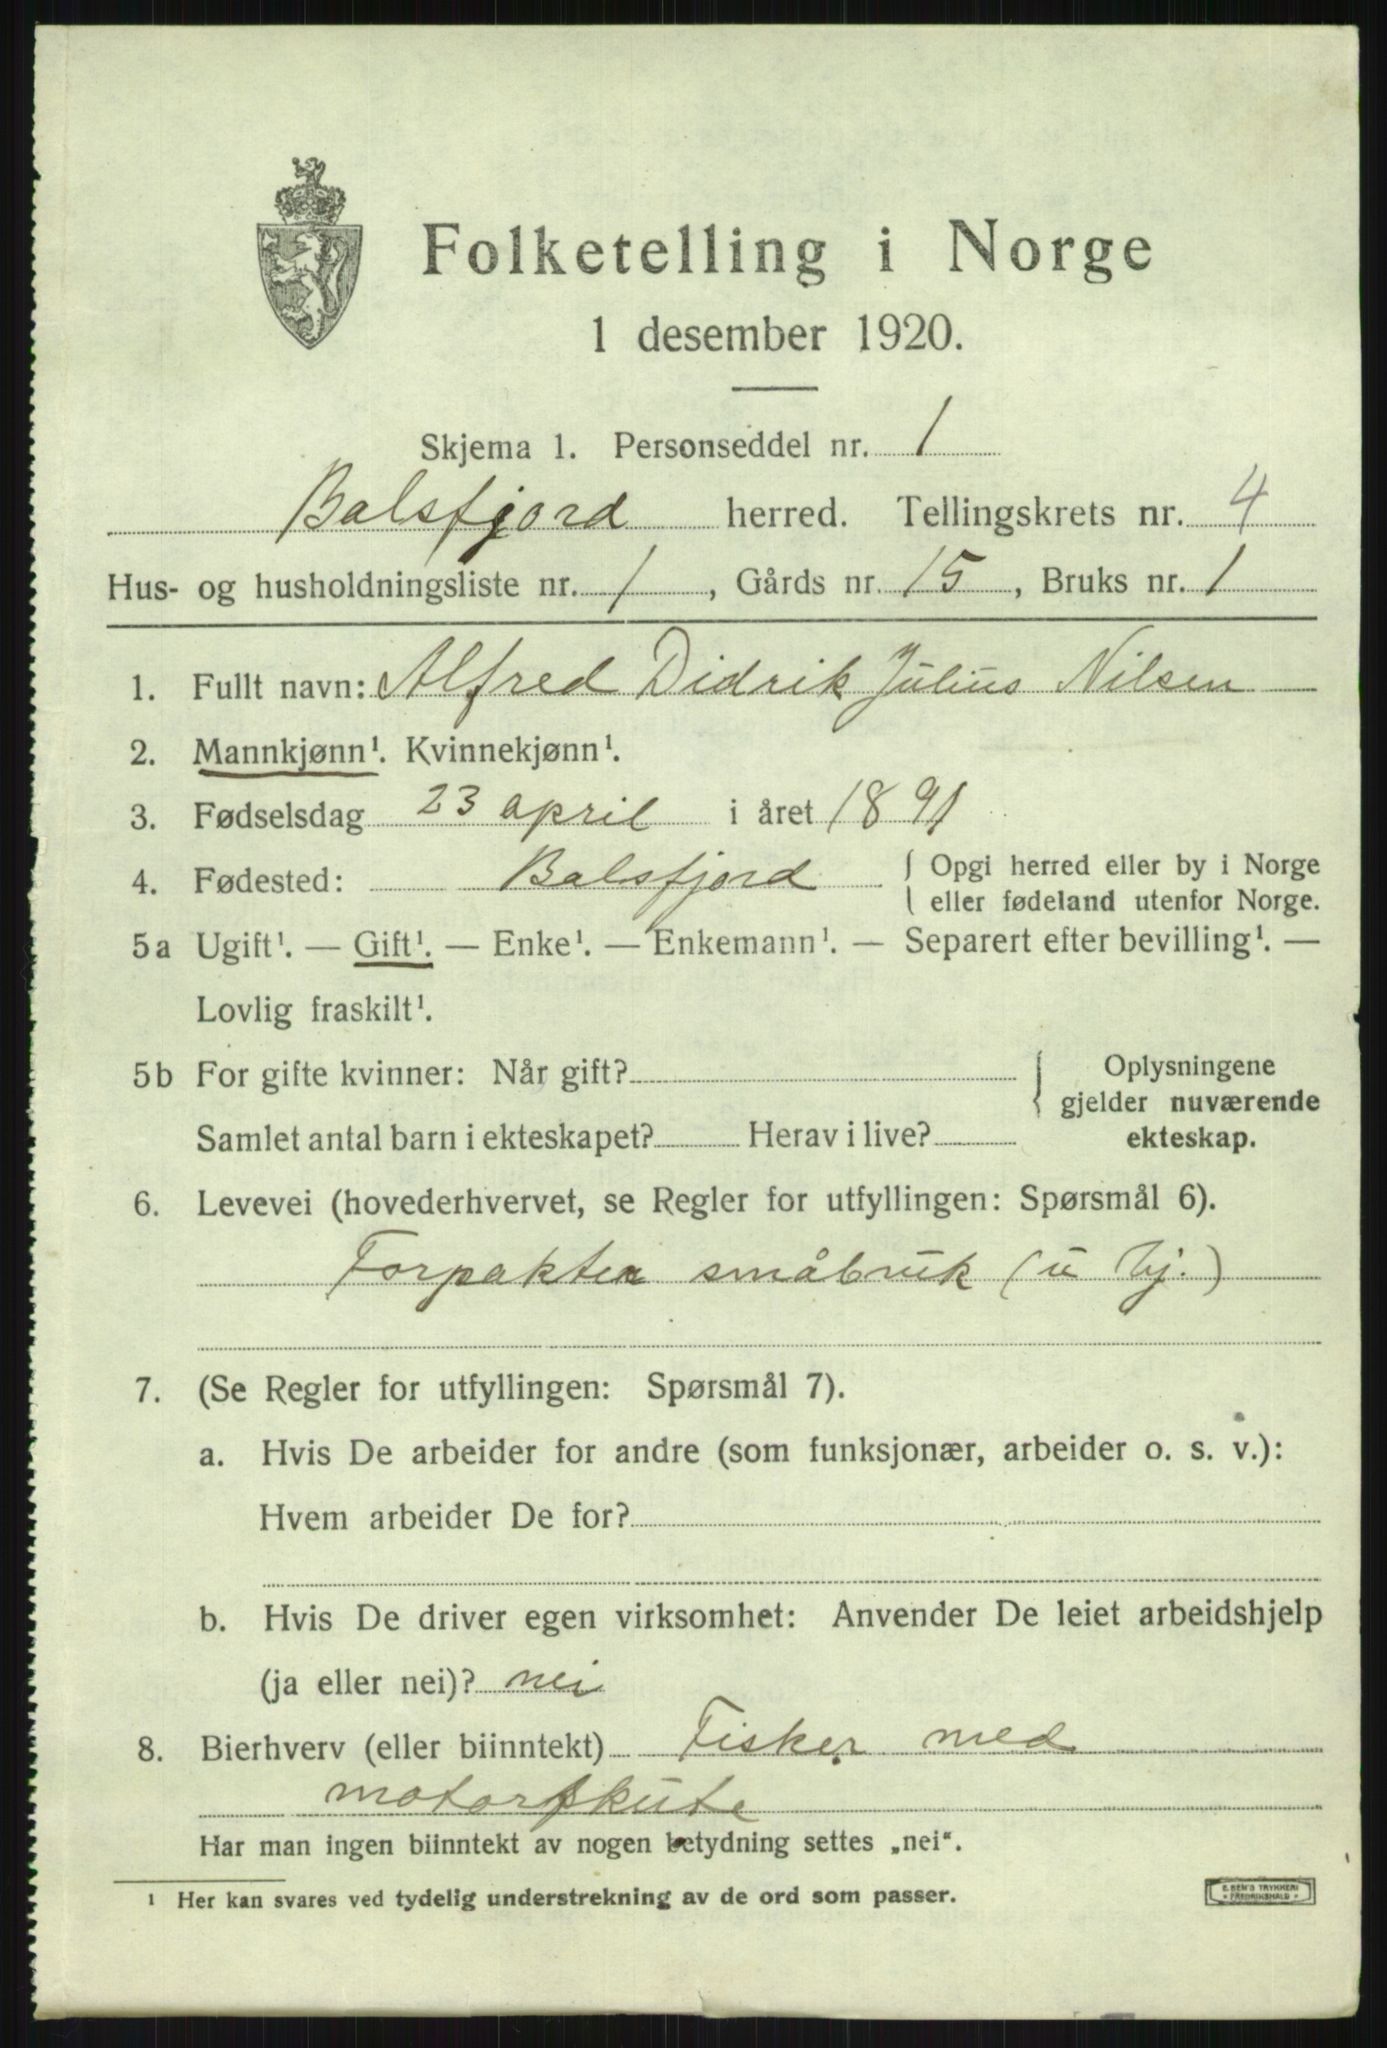 Folketelling i Norge
1 desember 1920.
Skjema 1. Personseddel nr. 1
Balsfjord herred. Tellingskrets nr. 4
Hus- og husholdningsliste nr. 1, Gårds nr. 15, Bruks nr. 1
1. Fullt navn: Alfred Didrik Julius Nilsen
2. Mannkjønn¹. Kvinnekjønn¹.
3. Fødselsdag 23 april i året 1891
4. Fødested: Balsfjord { Opgi herred eller by i Norge
eller fødeland utenfor Norge.
5a Ugift¹. — Gift¹. — Enke¹. — Enkemann¹. — Separert efter bevilling¹. —
Lovlig fraskilt¹.
5b For gifte kvinner: Når gift? { Oplysningene
gjelder nuværende
Samlet antal barn i ekteskapet? Herav i live? ekteskap.
6. Levevei (hovederhvervet, se Regler for utfyllingen: Spørsmål 6).
Forpakter småbruk (u hj.)
7. (Se Regler for utfyllingen: Spørsmål 7).
a. Hvis De arbeider for andre (som funksjonær, arbeider o. s. v.):
Hvem arbeider De for?
b. Hvis De driver egen virksomhet: Anvender De leiet arbeidshjelp
(ja eller nei)? nei
8. Bierhverv (eller biinntekt) Fisker med
motorskute
Har man ingen biinntekt av nogen betydning settes „nei“.
¹ Her kan svares ved tydelig understrekning av de ord som passer.
E. SEM'S TRYKKERI
FREDRIKSHALD